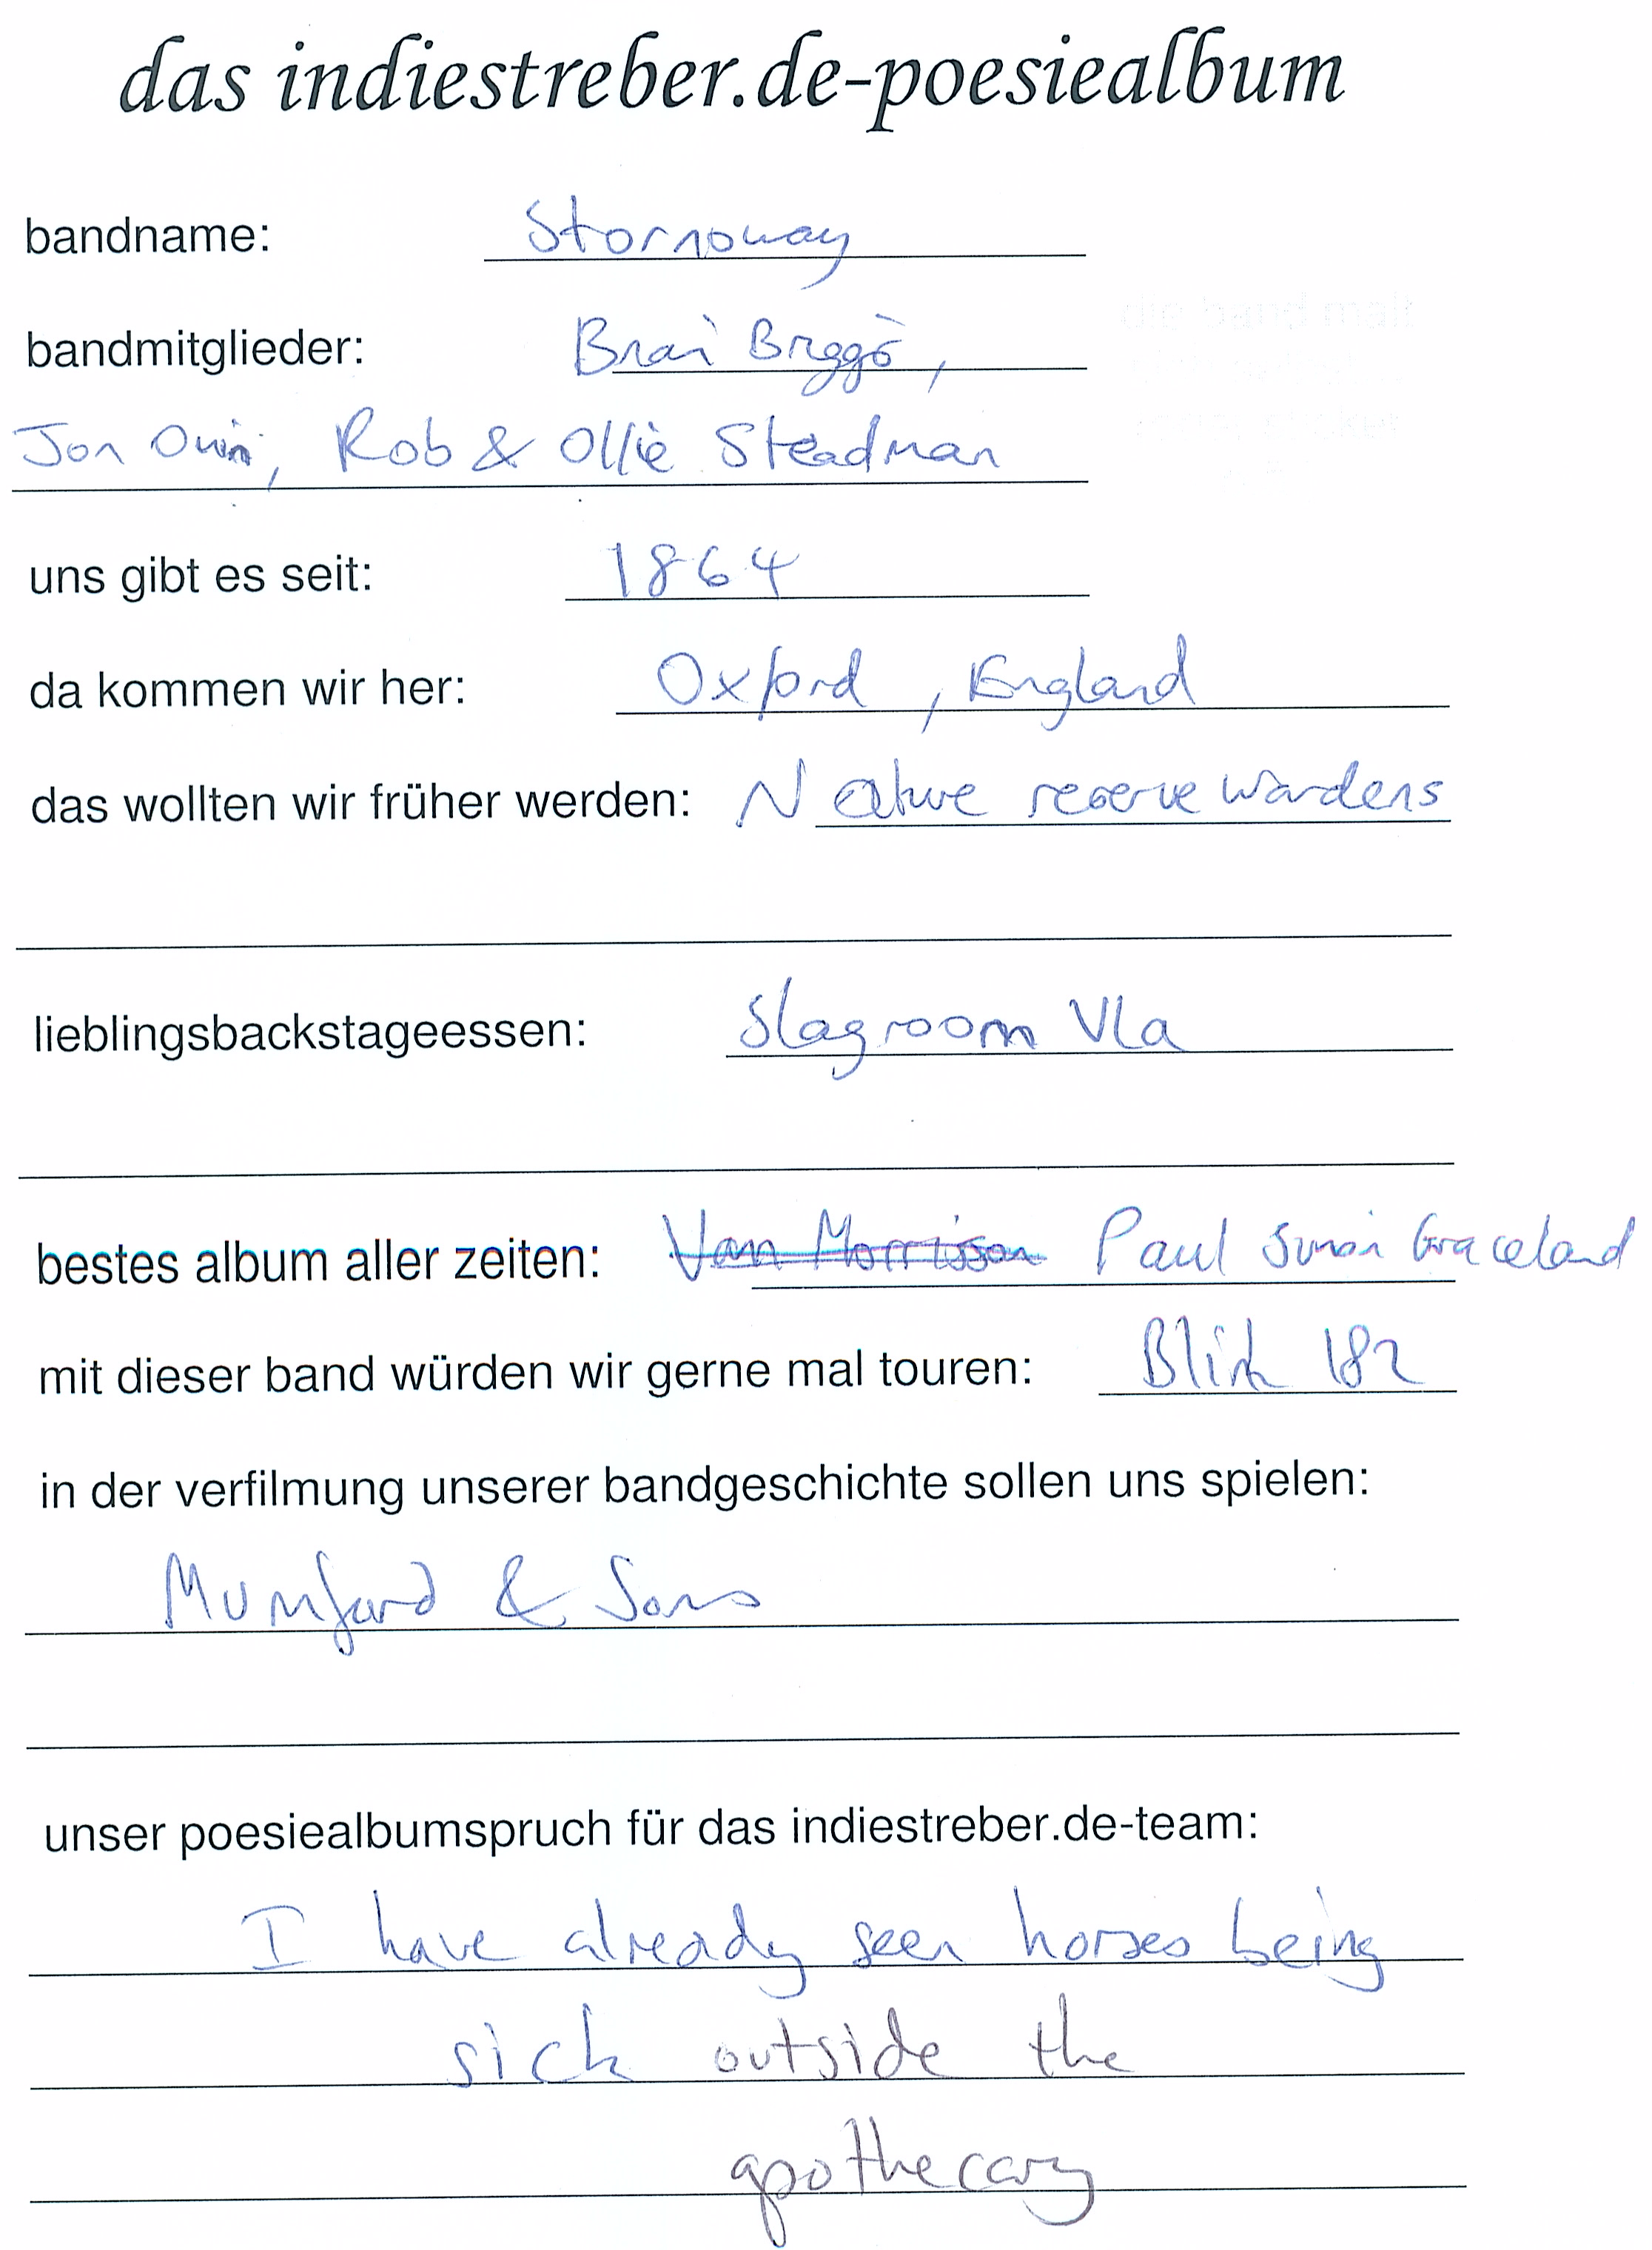 das indiestreber.de-poesiealbum
bandname: Stornoway
bandmitglieder: Brian Briggs,
Jon Ouin, Rob & Ollie Steadman
uns gibt es seit: 1864
da kommen wir her: Oxford, England
das wollten wir früher werden: Nature reserve wardens
lieblingsbackstageessen: Slagroom Vla
bestes album aller zeiten: Van Morrisson Paul Simon Graceland
mit dieser band würden wir gerne mal touren: Blink 182
in der verfilmung unserer bandgeschichte sollen uns spielen:
Mumford & Sons
unser poesiealbumspruch für das indiestreber.de-team:
I have already seen horses being
sick outside the
apothecary